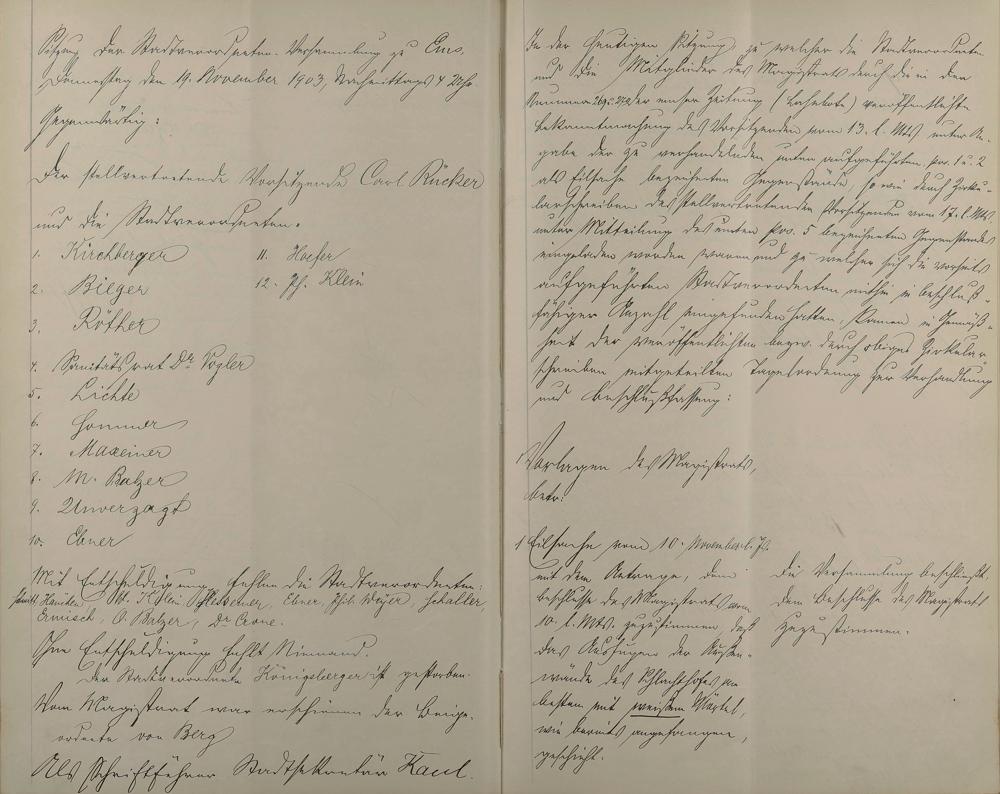 Sitzung der Stadtverordneten-Versammlung zu Ems,
Donnerstag den 19. November 1903, Nachmittags 4 Uhr.
Gegenwärtig:
Der stellvertretende Vorsitzende Carl Rücker
und die Stadtverordneten:
1. Kirchberger
2. Bieger
3. Röther
4. Sanitätsrat Dr. Vogler
5. Lichte
6. Hommer
7. Maxeiner
8. M. Balzer
9. Unverzagt
10. Ebner
11. Hoefer
12. Ph. Klein
Mit Entschuldigung fehlen die Stadtverordneten:
Klein, Ebner, Phil. Weyer, Schaller,
Ermisch, O. Balzer, Dr. Crone.
Ohne Entschuldigung fehlt Niemand.
Der Stadtverordnete Königsberger ist gestorben.
Vom Magistrat war erschienen der Beige-
ordnete von Berg
Als Schriftführer Stadtsekretär Kaul.
In der heutigen Sitzung, zu welcher die Stadtverordneten
und die Mitglieder des Magistrats durch die in den
Nummern 269 u. 272 der Emser Zeitung (Lahnbote) veröffentlichte
Bekanntmachung des Vorsitzenden vom 13. l. Mts. unter An-
gabe der zu verhandelnden unten aufgeführten, pos. 1 u. 2
als Eilsache bezeichneten Gegenstände, sowie durch Zirku-
larschreiben des stellvertretenden Vorsitzenden vom 17. l. Mts.
unter Mitteilung des unten pos. 5 bezeichneten Gegenstandes
eingeladen worden waren und zu welcher sich die vorseits
aufgeführten Stadtverordneten mithin in beschluß-
fähiger Anzahl eingefunden hatten, kamen in Gemäß-
heit der veröffentlichten bezw. durch obiges Zirkular-
schreiben mitgeteilten Tagesordnung zur Verhandlung
und Beschlußfassung:
1 Vorlagen des Magistrats,
betr:
1 Eilsache vom 10. November l. Js.
mit dem Antrage, dem
Beschlusse des Magistrats vom
10. l. Mts. zuzustimmen, daß
das Ausfugen der Außen-
wände des Schlachthofes am
besten mit weißem Mörtel,
wie bereits angefangen,
geschieht.
Die Versammlung beschließt,
dem Beschlusse des Magistrats
zuzustimmen.